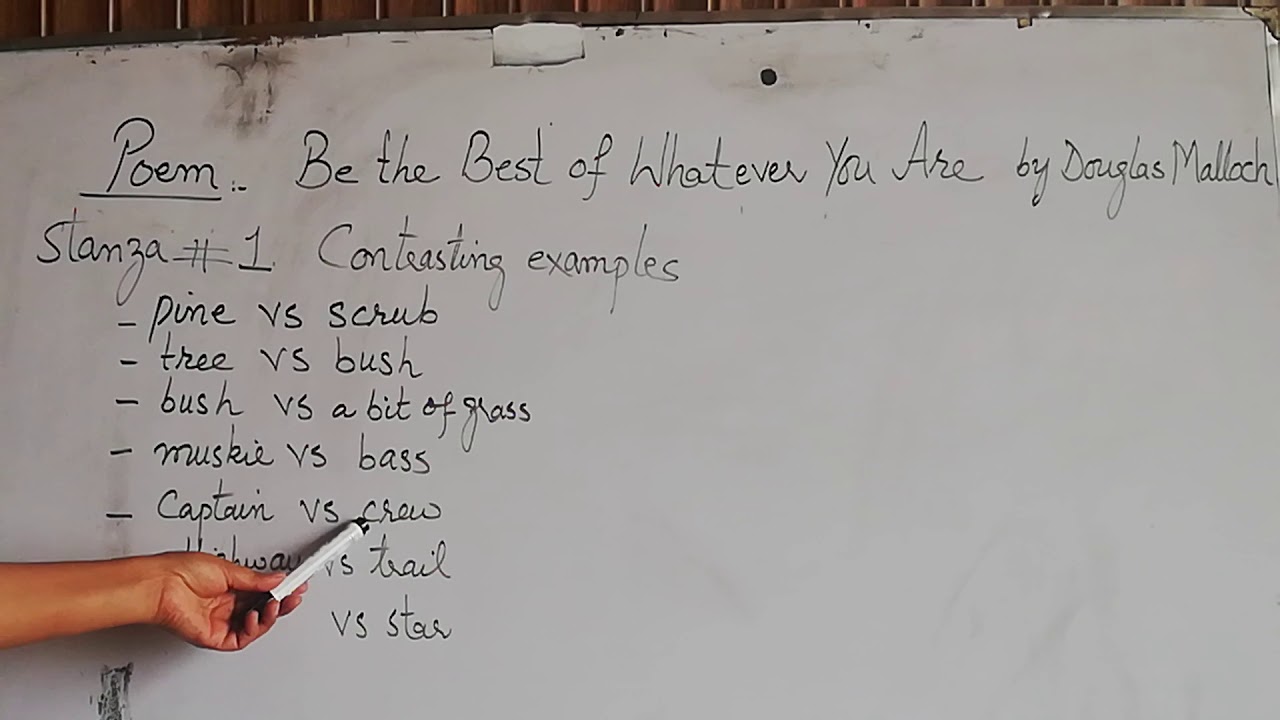 Poem:- Be the Best of Whatever You Are by Douglas Malloch
Stanza # 1. Contrasting examples
- pine vs scrub
- tree vs bush
- bush vs a bit of grass
- muskie vs bass
- Captain vs crew
Highway vs trail
vs star